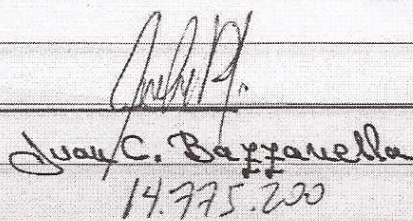 Juan C. Bazzanella
14.775.200